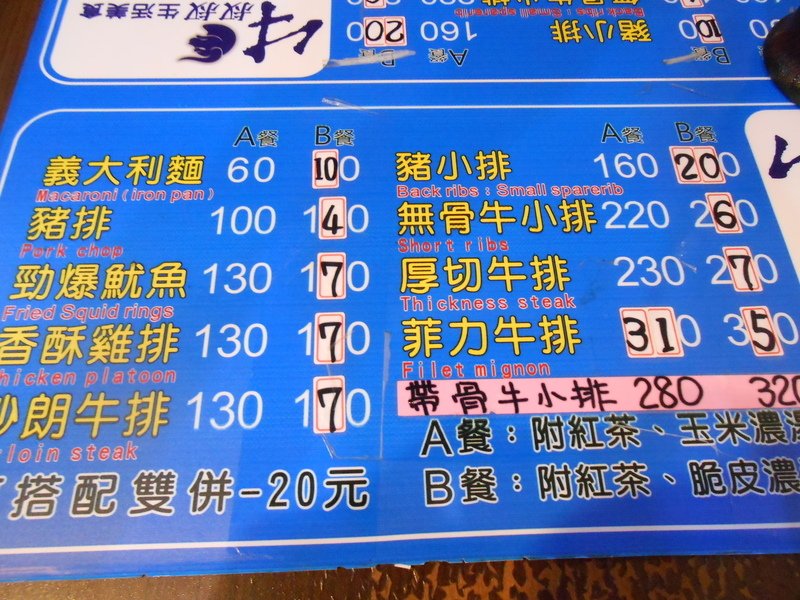 叔叔生活美食
B餐
A餐
200
160
豬小排
Back ribs : Small sparerib
A餐 B餐
義大利麵 60 100
Macaroni (iron pan)
豬排 100 140
Pork chop
勁爆魷魚 130 170
Fried Squid rings
香酥雞排 130 170
hicken platoon
朗牛排 130 170
rloin steak
搭配雙併-20元
A餐 B餐
豬小排 160 200
Back ribs : Small sparerib
無骨牛小排 220 260
Short ribs
厚切牛排 230 270
Thickness steak
菲力牛排 310 350
Filet mignon
帶骨牛小排 280 320
A餐：附紅茶、玉米濃湯
B餐：附紅茶、脆皮濃